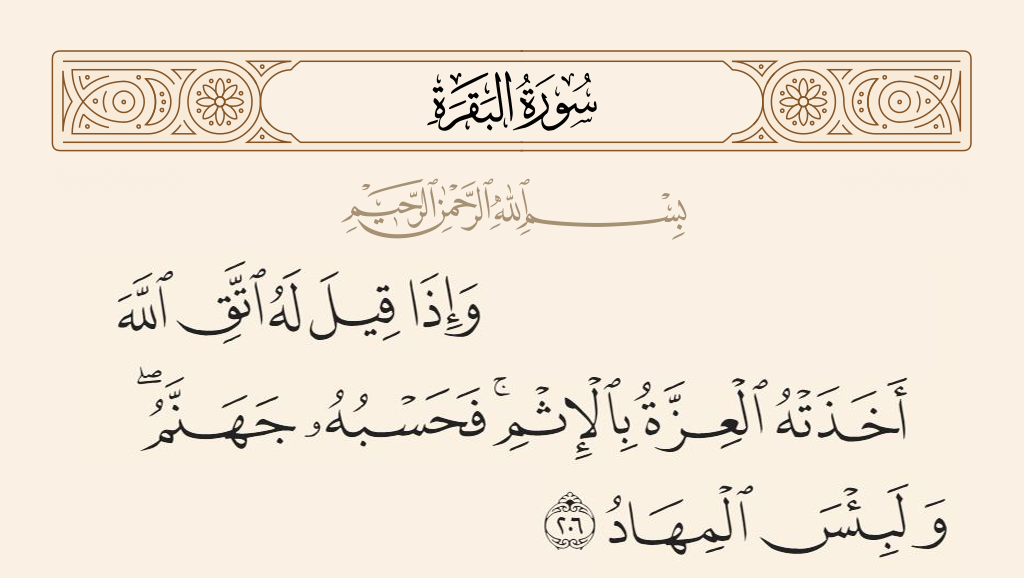 سُورَةُ البَقَرَةِ
بِسْمِ ٱللَّهِ ٱلرَّحْمَٰنِ ٱلرَّحِيمِ
وَإِذَا قِيلَ لَهُ ٱتَّقِ ٱللَّهَ
أَخَذَتْهُ ٱلْعِزَّةُ بِٱلْإِثْمِ ۚ فَحَسْبُهُۥ جَهَنَّمُ ۖ
وَلَبِئْسَ ٱلْمِهَادُ ٢٠٦